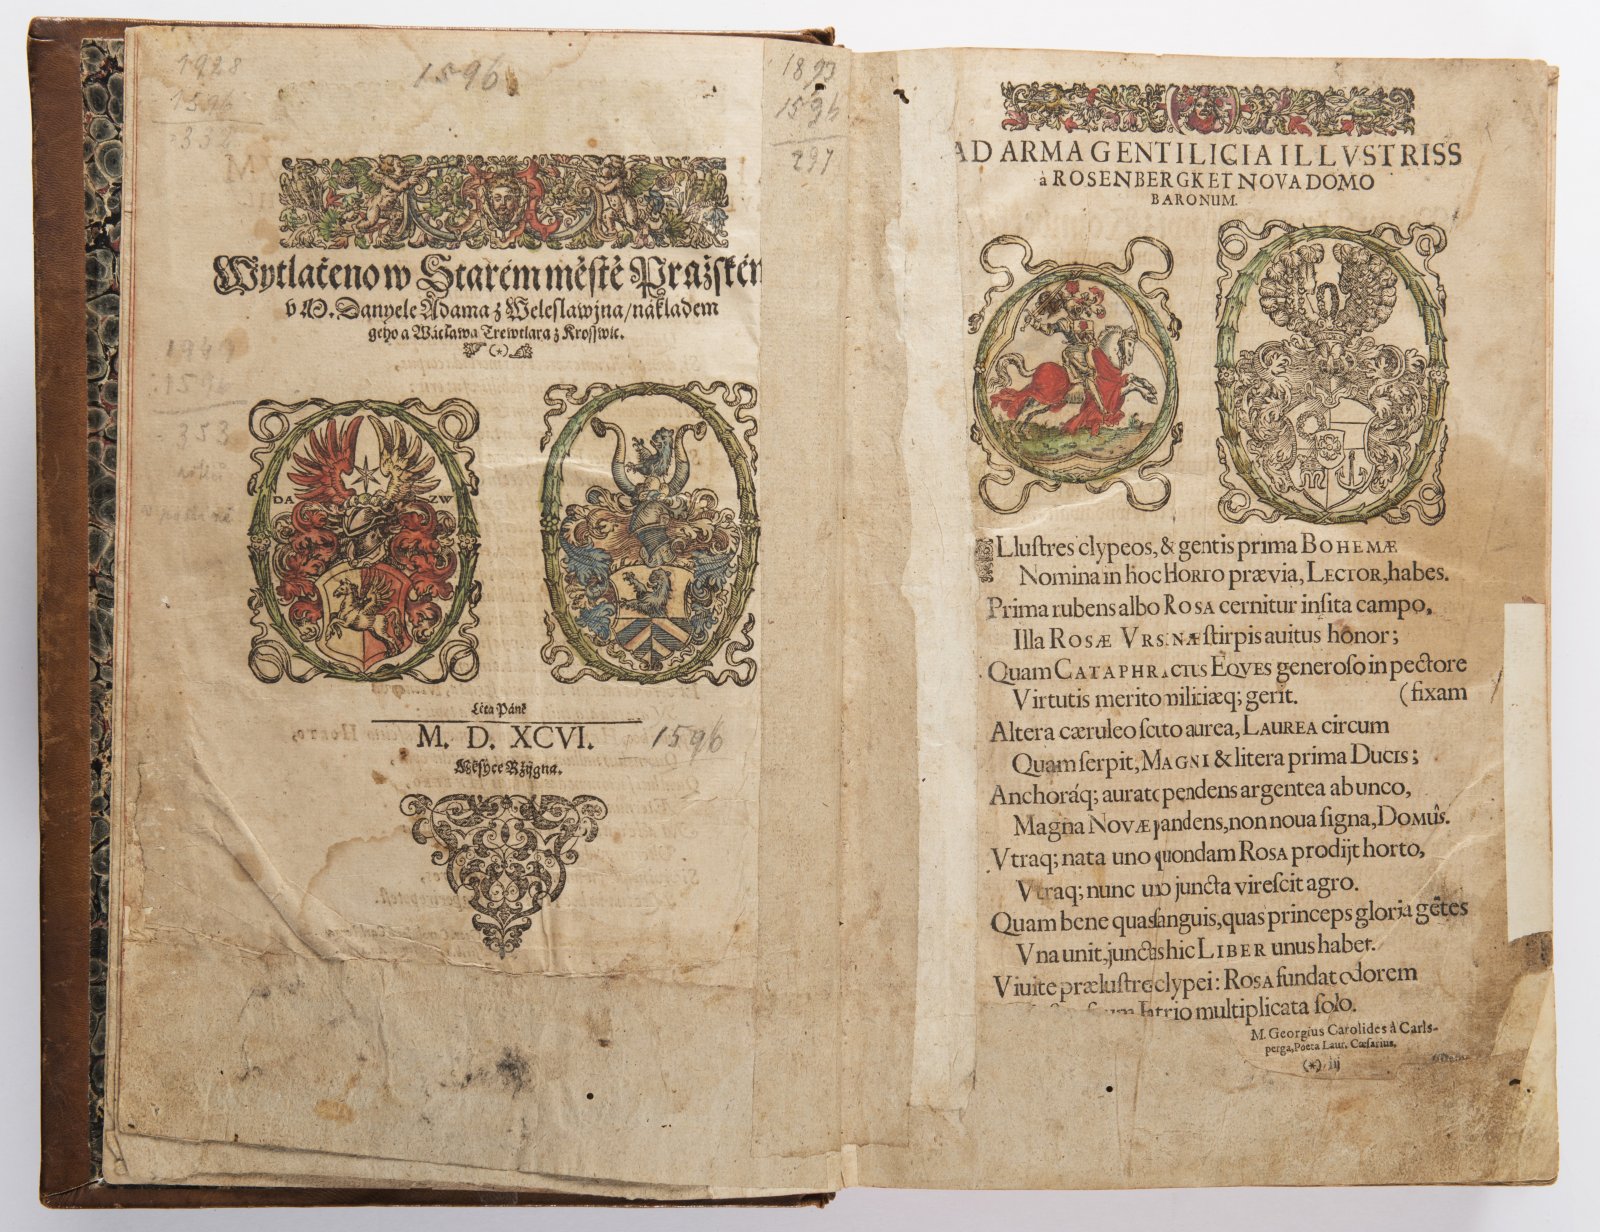 1928
1596
332
1596
1893
1596
297
Wytlačeno w Starém městě Pražském
v M. Danyele Adama z Weleslawjna / nákladem
geho a Wácława Trewtlara z Krosswic.
(*)
1949
1596
353
DA ZW
Léta Páně
M. D. XCVI.
1596
Měsyce Ržijgna.
AD ARMA GENTILICIA ILLVSTRISS
à ROSENBERGK ET NOVA DOMO
BARONUM.
ILluſtres clypeos, & gentis prima BOHEMÆ
Nomina in hoc HORTO prævia, LECTOR, habes.
Prima rubens albo ROSA cernitur inſita campo,
Illa ROSÆ VRSINÆ ſtirpis auitus honor;
Quam CATAPHRACTUS EQVES generoſo in pectore
Virtutis merito militiæq; gerit. (fixam
Altera cæruleo ſcuto aurea, LAUREA circum
Quam ſerpit, MAGNI & litera prima DUCIS;
Anchoráq; aurato pendens argentea ab unco,
Magna NOVÆ pandens, non noua ſigna, DOMÛS.
Vtraq; nata uno quondam ROSA prodijt horto,
Vtraq; nunc uno juncta vireſcit agro.
Quam bene quas ſanguis, quas princeps gloria gētes
Vna unit, junctas hic LIBER unus habet.
Viuite præluſtres clypei: ROSA fundat odorem
Patrio multiplicata ſolo.
M. Georgius Carolides à Carls-
perga, Poeta Laur. Cæſarius.
(*) iij